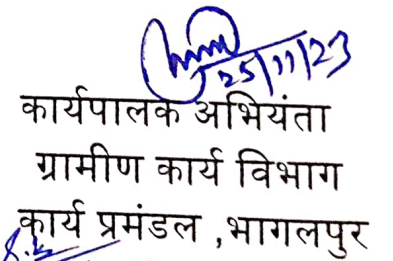 25/11/23
कार्यपालक अभियंता
ग्रामीण कार्य विभाग
कार्य प्रमंडल ,भागलपुर